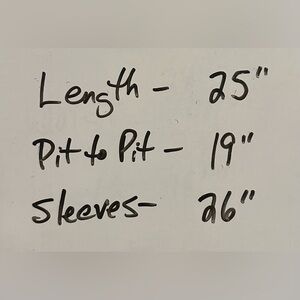 Length - 25"
Pit to Pit - 19"
Sleeves- 26"